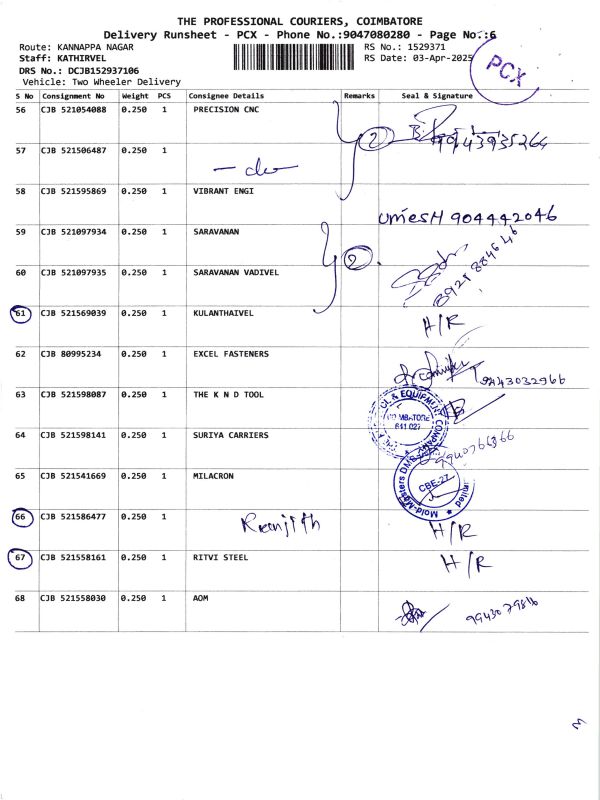 THE PROFESSIONAL COURIERS, COIMBATORE
Delivery Runsheet - PCX - Phone No.:9047080280 - Page No.:6
Route: KANNAPPA NAGAR
RS No.: 1529371
Staff: KATHIRVEL
RS Date: 03-Apr-2025
DRS No.: DCJB152937106
Vehicle: Two Wheeler Delivery
PCX
S No Consignment No Weight PCS Consignee Details Remarks Seal & Signature
56 CJB 521054088 0.250 1 PRECISION CNC 2
57 CJB 521506487 0.250 1 - do -
58 CJB 521595869 0.250 1 VIBRANT ENGI
UmesH 904442046
59 CJB 521097934 0.250 1 SARAVANAN 2
60 CJB 521097935 0.250 1 SARAVANAN VADIVEL
61 CJB 521569039 0.250 1 KULANTHAIVEL H/R
62 CJB 80995234 0.250 1 EXCEL FASTENERS
9443032966
63 CJB 521598087 0.250 1 THE K N D TOOL
& EQUIPMENT COMPANY
COIMBATORE
641 027
64 CJB 521598141 0.250 1 SURIYA CARRIERS
65 CJB 521541669 0.250 1 MILACRON
Mold-Masters
CBE-27
66 CJB 521586477 0.250 1 Ranjith H/R
67 CJB 521558161 0.250 1 RITVI STEEL H/R
68 CJB 521558030 0.250 1 AOM